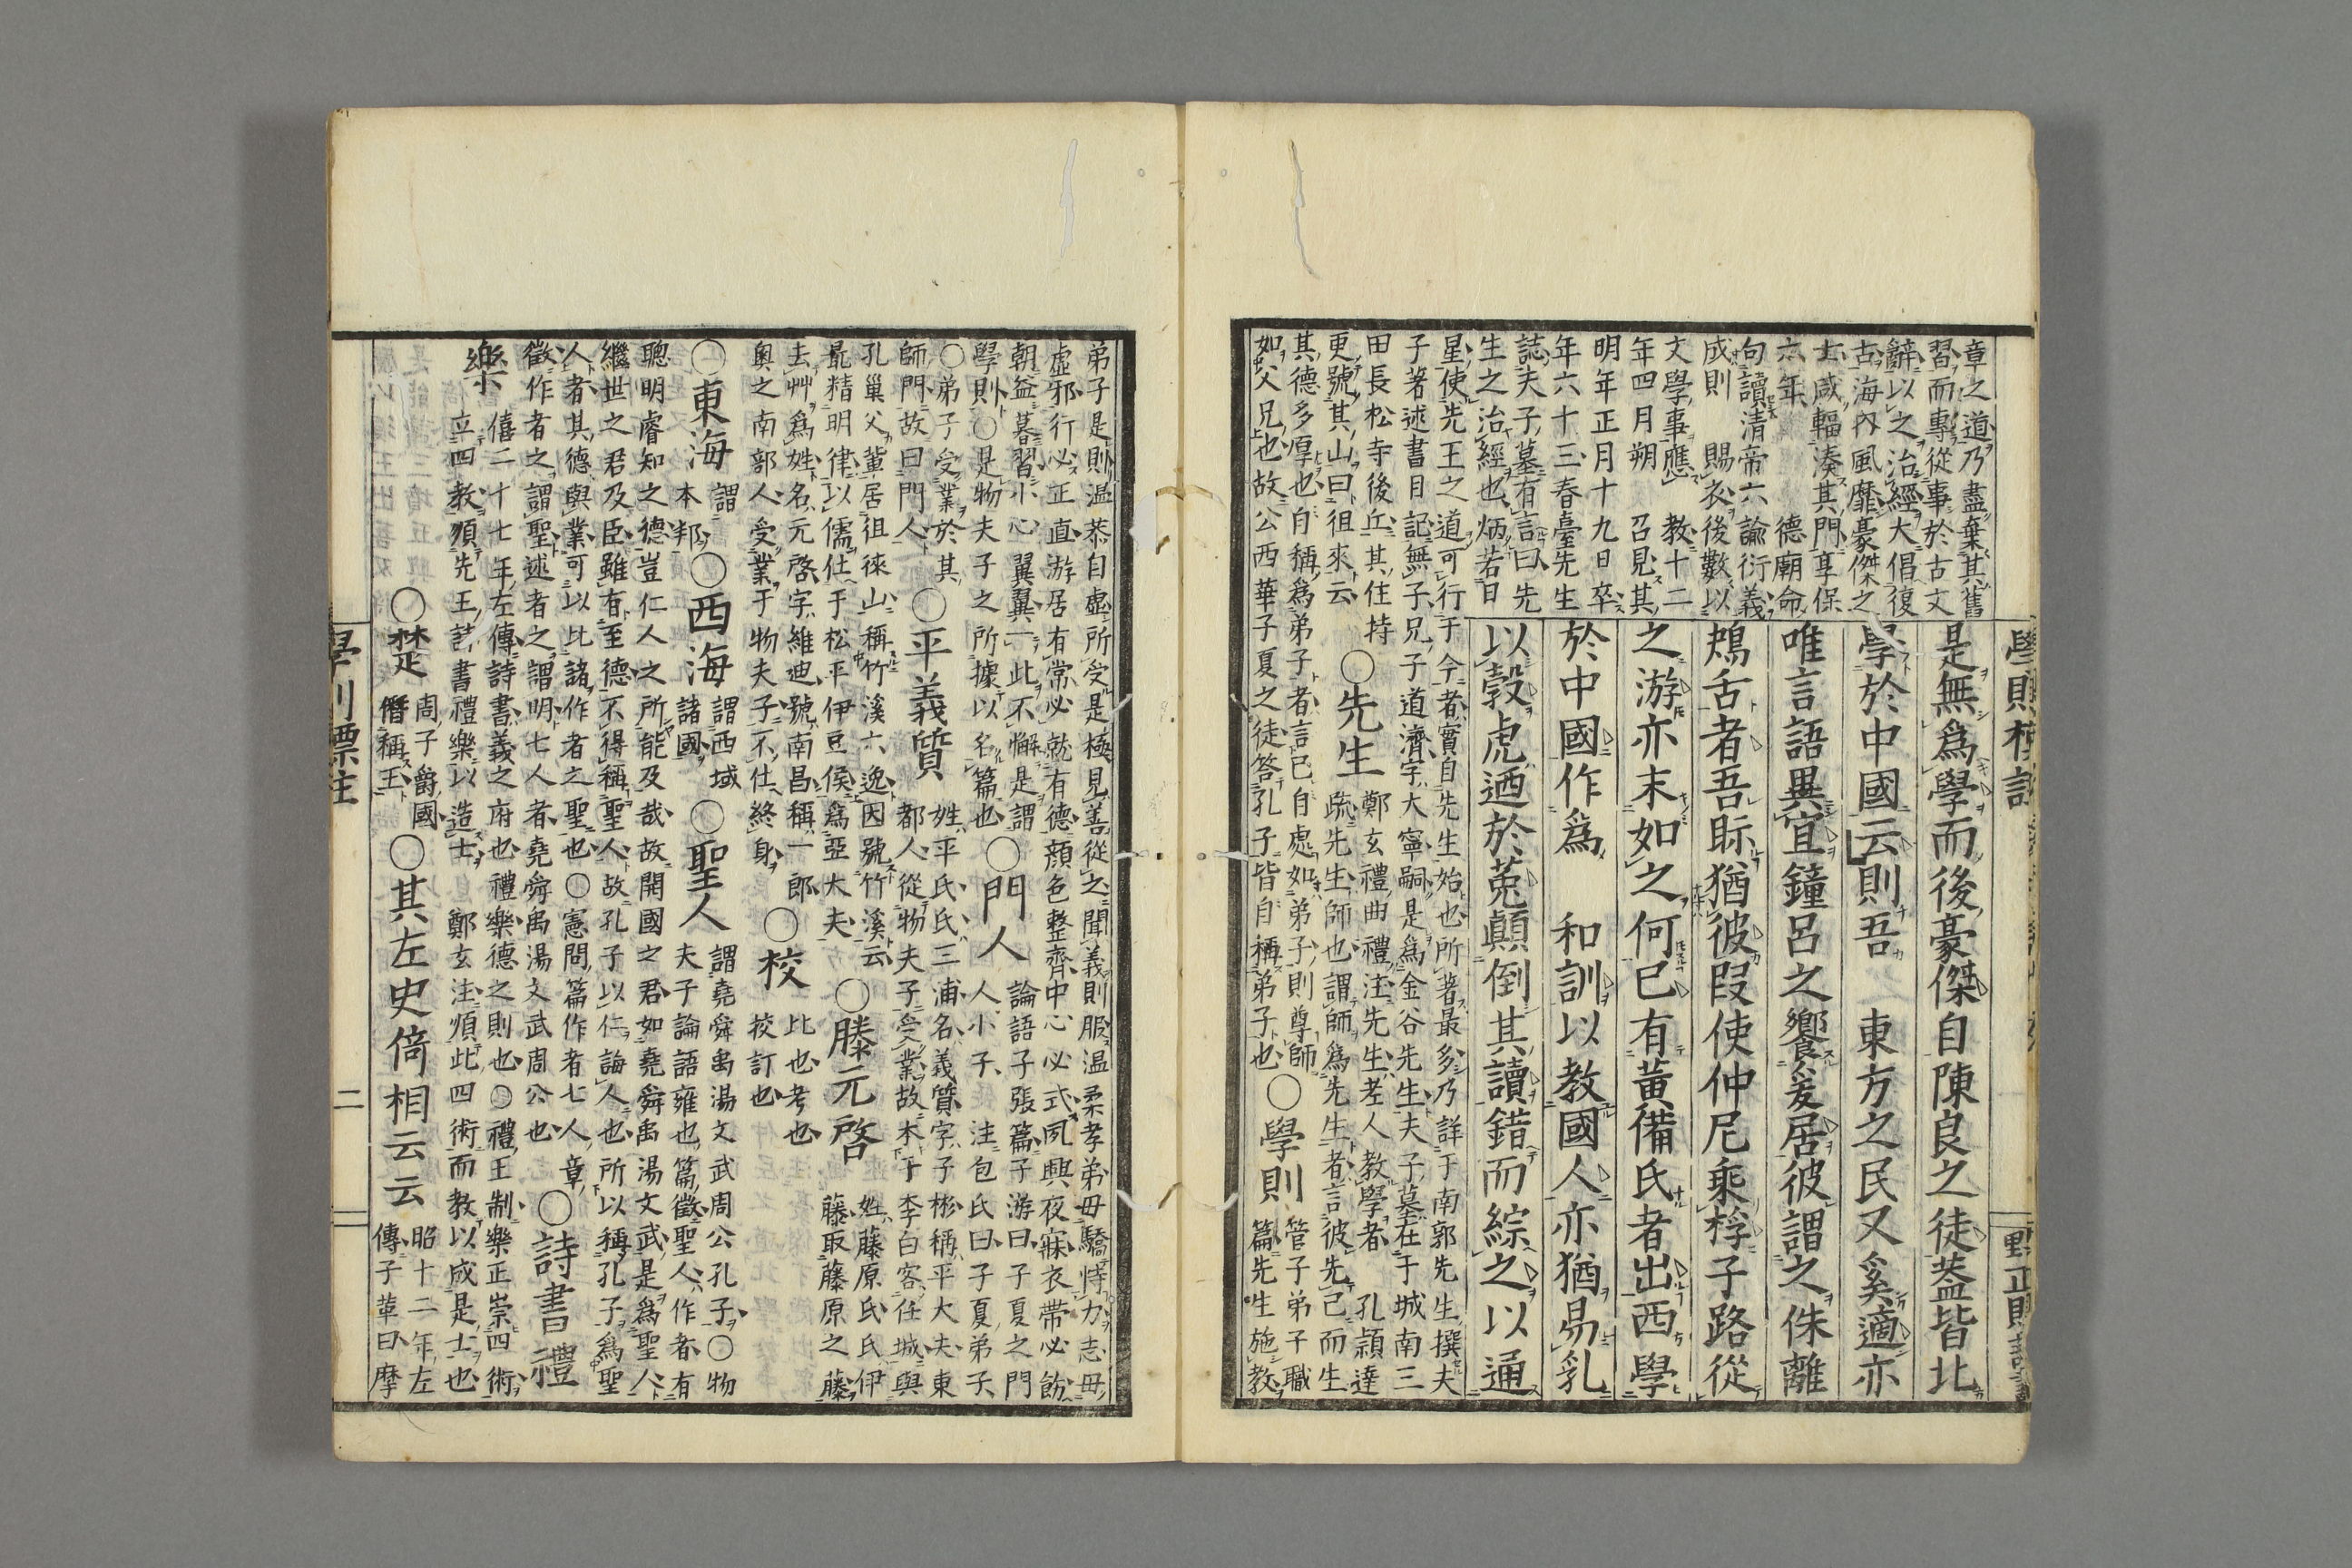 學則標註
是無爲學而後豪傑自陳良之徒葢皆北
學於中國云則吾　東方之民又奚適亦
唯言語異宜鐘呂之饗爰居彼謂之侏離
鴂舌者吾眎猶彼叚使仲尼乘桴子路從
之游亦末如之何已有黃備氏者出西學
於中國作爲　和訓以教國人亦猶易乳
以穀虎迺於菟顚倒其讀錯而綜之以通
章之道乃盡棄其舊
習而專從事於古文
辭以之治經大倡復
古海內風靡豪傑之
士咸輻湊其門享保
六年　德廟命
句讀清帝六諭衍義
成則　賜衣後數以
文學事應　教十二
年四月朔　召見其
明年正月十九日卒
年六十三春臺先生
誌夫子墓有言曰先
生之治經也炳若日
星使先王之道可行于今者實自先生始也所著最多乃詳于南郭先生撰夫
子著述書目記無子兄子道濟字大寧嗣是爲金谷先生夫子墓在于城南三
田長松寺後丘其住持
更號其山曰徂來云
○先生
鄭玄禮曲禮注先生老人教學者　孔頴達
疏先生師也謂師爲先生者言彼先己而生
其德多厚也自稱爲弟子者言己自處如弟子則尊師
如父兄也故公西華子夏之徒答孔子皆自稱弟子也
○學則
管子弟子職
篇先生施教
弟子是則温恭自虛所受是極見善從之聞義則服温柔孝弟毋驕恃力志毋
虛邪行必正直游居有常必就有德顏色整齊中心必式夙興夜寐衣帶必飭
朝益暮習小心翼翼一此不懈是謂
學則○是物夫子之所據以名篇也
○門人
論語子張篇子游曰子夏之門
人小子注包氏曰子夏弟子
○弟子受業於其
師門故曰門人
○平義質
姓平氏氏三浦名義質字子彬稱平大夫東
都人從物夫子受業故本于李白客任城與
孔巢父輩居徂徠山稱竹溪六逸因號竹溪云
最精明律以儒仕于松平伊豆侯爲亞大夫
○滕元啓
姓藤原氏氏伊
藤取藤原之藤
去艸爲姓名元啓字維迪號南昌稱一郎
奧之南部人受業于物夫子不仕終身
○校
比也考也
挍訂也
○東海
謂
本邦
○西海
謂西域
諸國
○聖人
謂堯舜禹湯文武周公孔子○物
夫子論語雍也篇徵聖人作者有
聰明睿知之德豈仁人之所能及哉故開國之君如堯舜禹湯文武是爲聖人
繼世之君及臣雖有至德不得稱聖人故孔子以仁誨人也所以稱孔子爲聖
人者其德與業可以比諸作者之聖也○憲問篇作者七人章
徵作者之謂聖述者之謂明七人者堯舜禹湯文武周公也
○詩書禮
樂
僖二十七年左傳詩書義之府也禮樂德之則也○禮王制樂正崇四術
立四教順先王詩書禮樂以造士　鄭玄注順此四術而教以成是士也
○楚
周子爵國
僭稱王
○其左史倚相云云
昭十二年左
傳子革曰摩
二